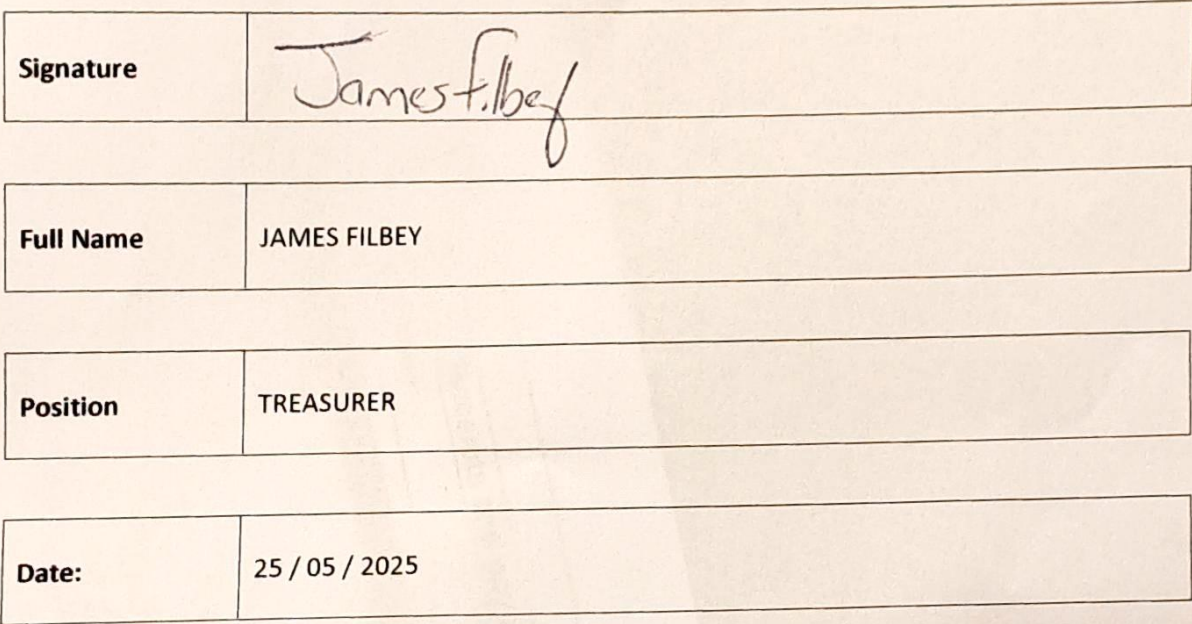 Signature James Filbey
Full Name JAMES FILBEY
Position TREASURER
Date: 25 / 05 / 2025